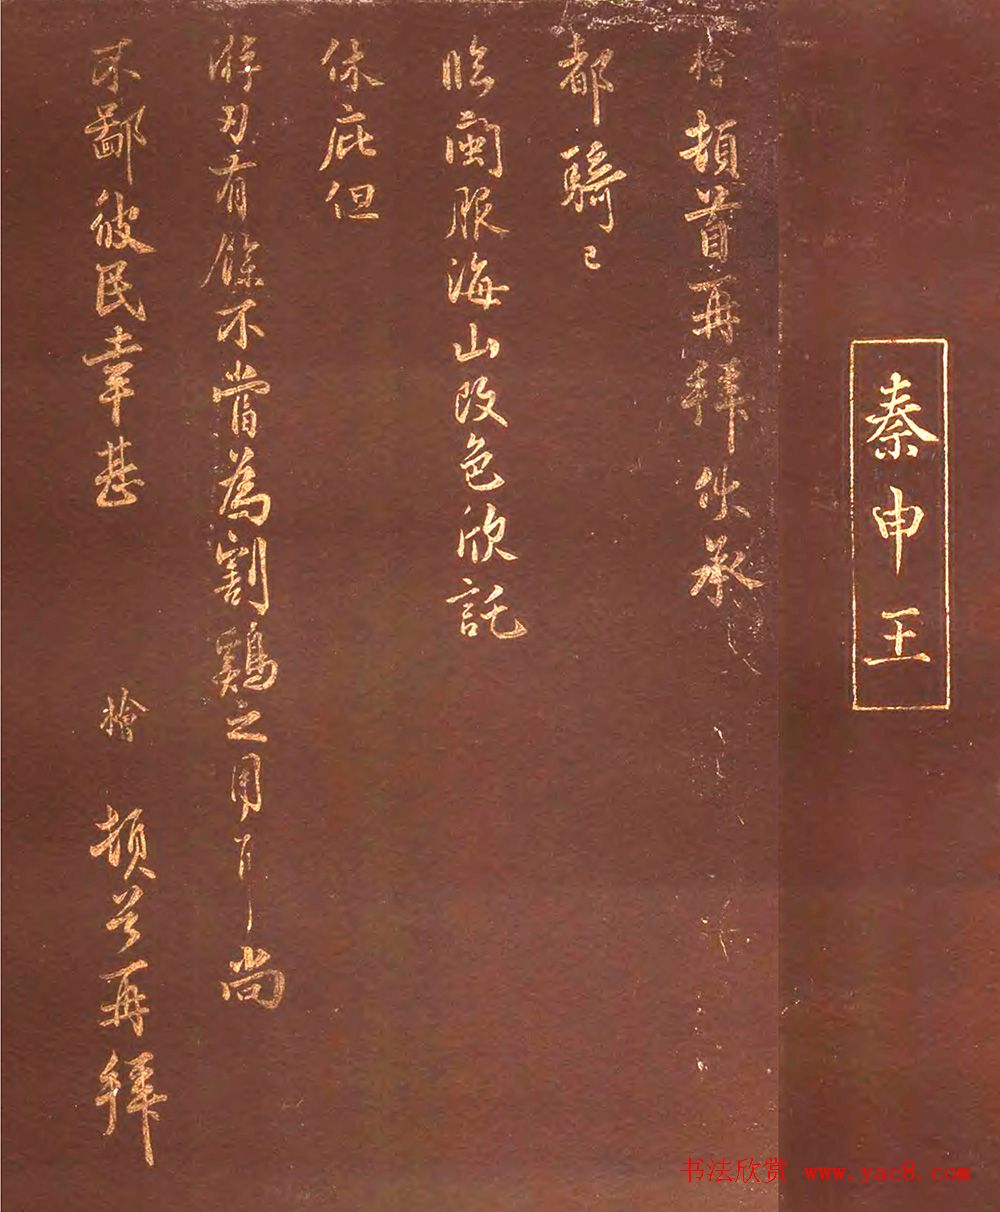 秦申王
檜頓首再拜伏承
都騎已
臨閩服海山改色欣託
休庇但
游刃有餘不當為割鷄之用耳尚
不鄙彼民幸甚
檜
頓首再拜
书法欣赏 www.yac8.com